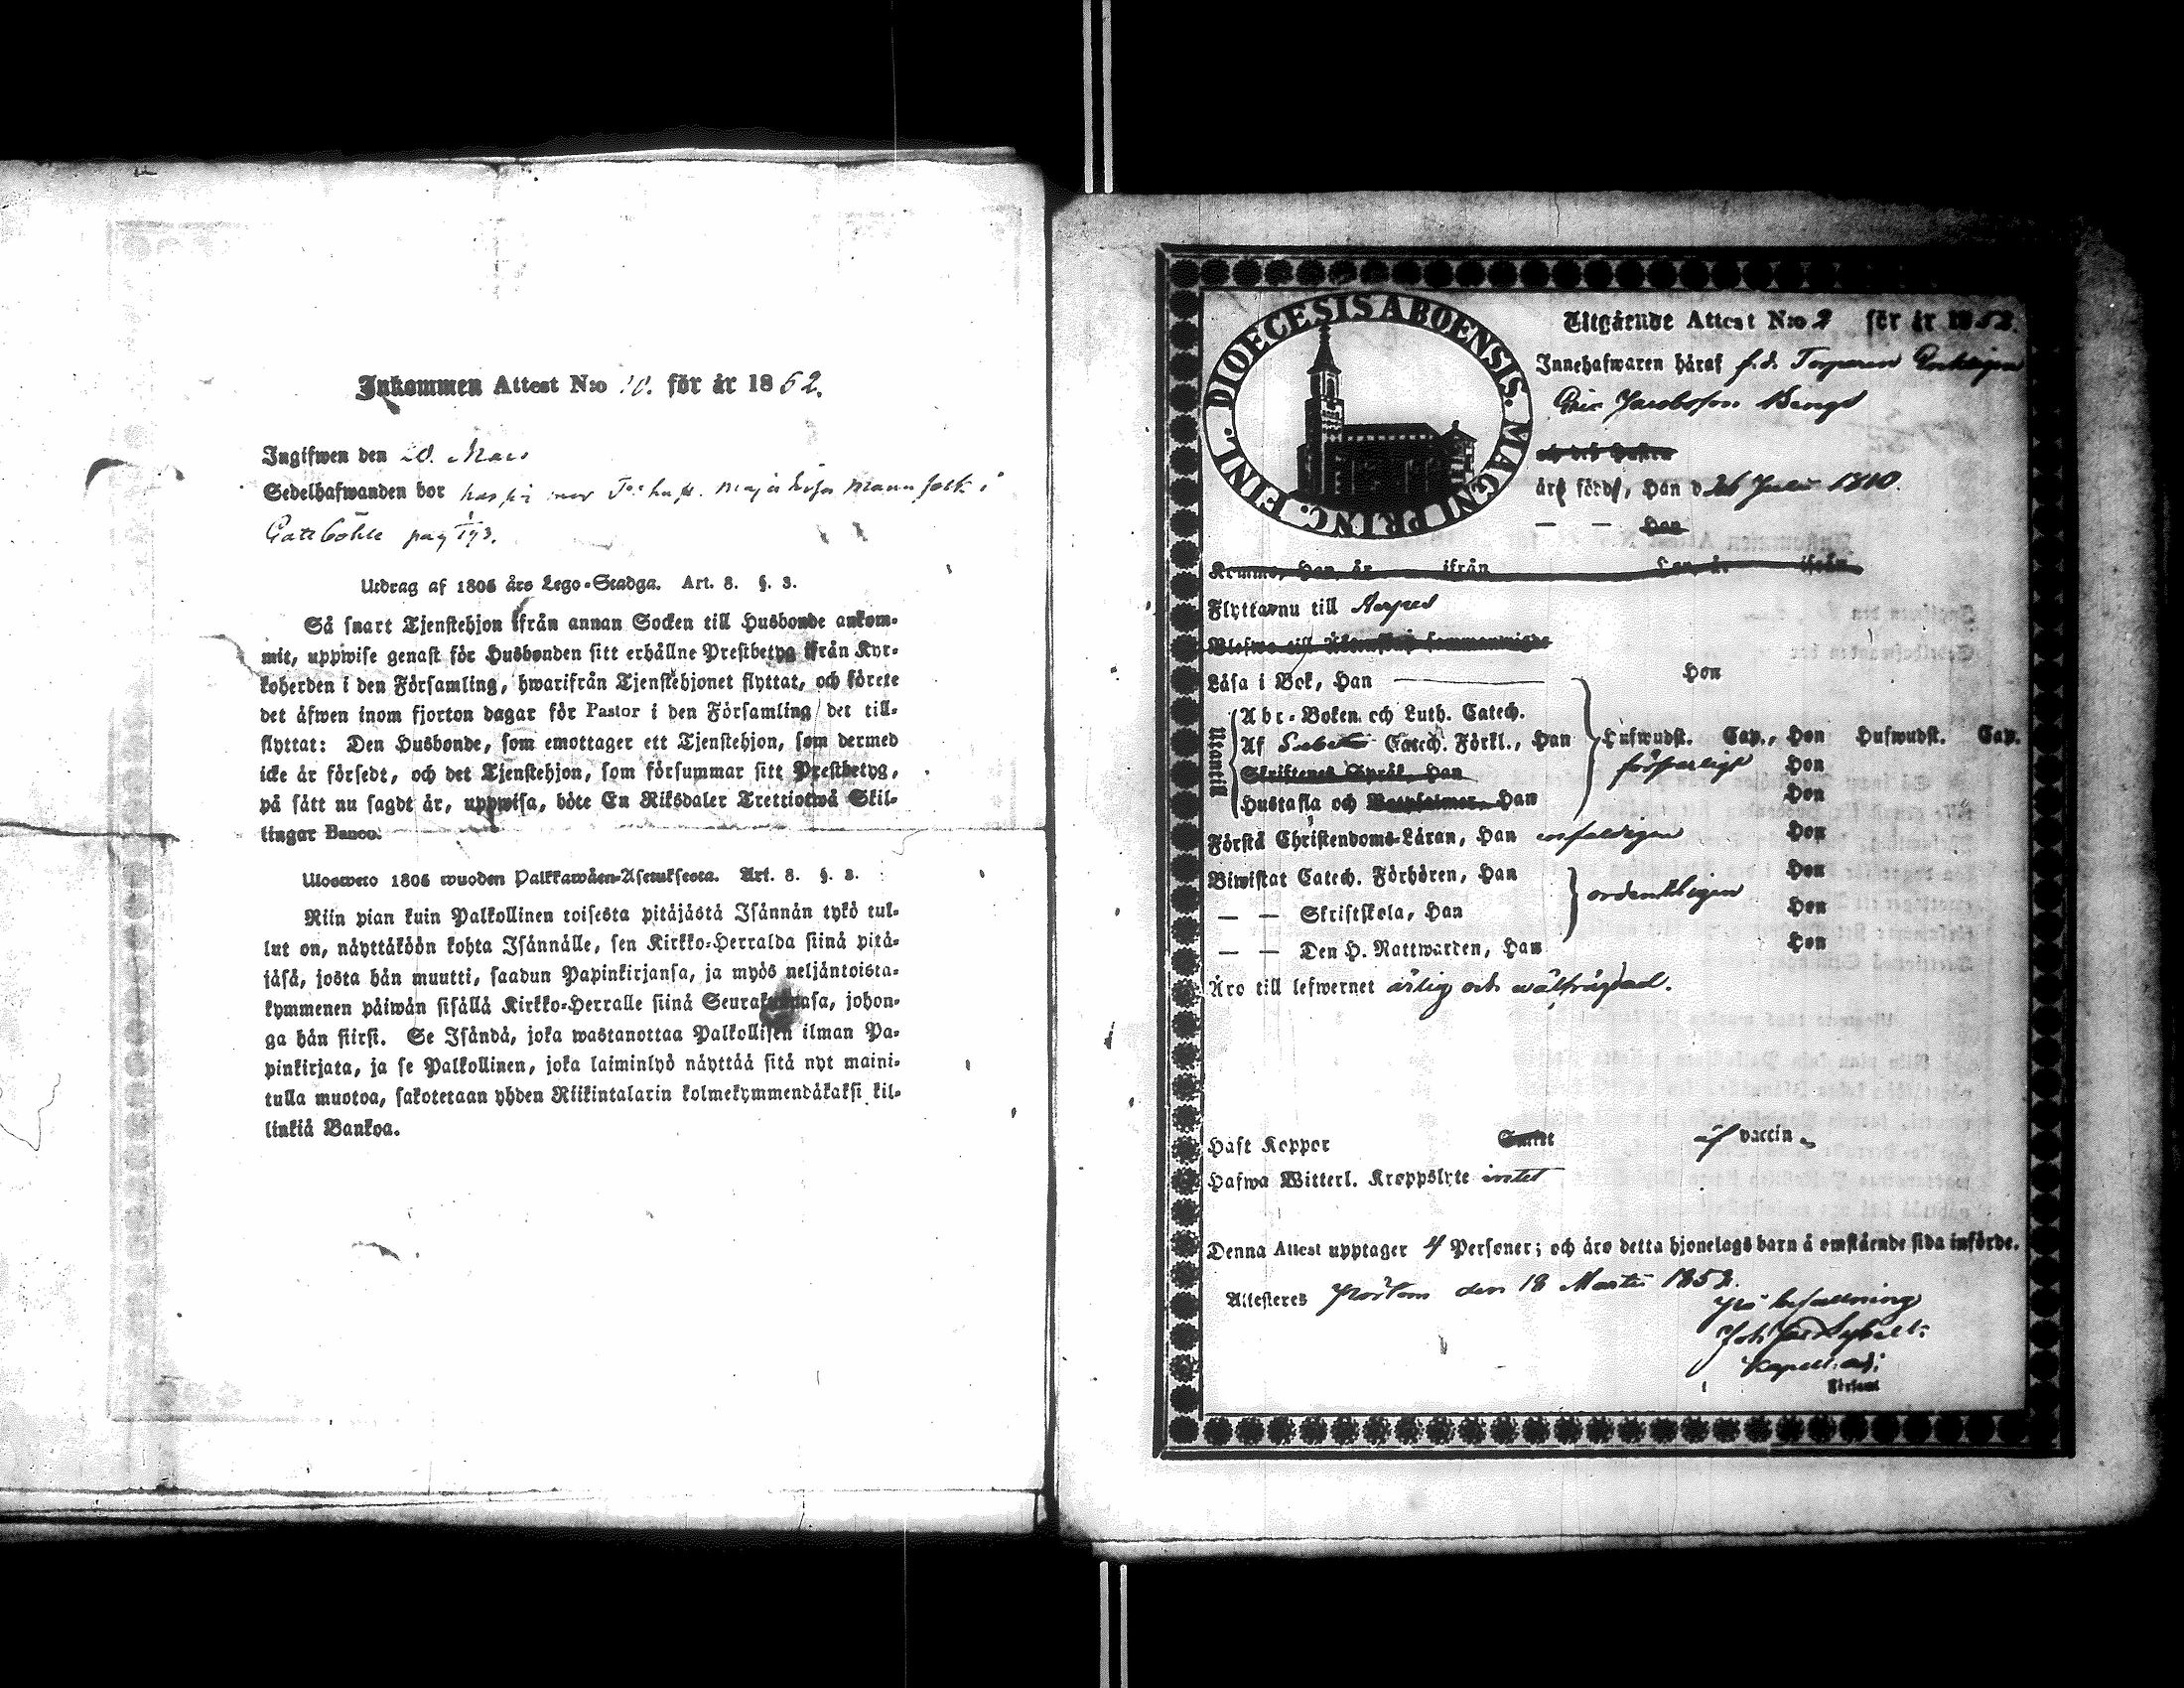 Inkommen Attest N:o 10. för år 1852.
Ingifwen den 20. Mars
Sedelhafwanden bor
Gottböhle pag 193.
Utdrag af 1805 års Lego-Stadga. Art. 8. §. 3.
Så snart Tjenstehjon ifrån annan Socken till Husbonde ankom-
mit, uppwise genast för Husbonden sitt erhållne Prestbetyg ifrån Kyr-
koherden i den Församling, hwarifrån Tjenstehjonet flyttat, och förete
det äfwen inom fjorton dagar för Pastor i den Församling det till-
flyttat: Den Husbonde, som emottager ett Tjenstehjon, som dermed
icke är försedt, och det Tjenstehjon, som försummar sitt Prestbetyg,
på sätt nu sagdt är, uppwisa, böte En Riksdaler Trettiotwå Skil-
lingar Banco.
Ulosweto 1805 wuoden Palkkawäen-Asetuksesta. Art. 8. §. 3.
Niin pian kuin Palkollinen toisesta pitäjästä Isännän tykö tul-
lut on, näyttäköön kohta Isännälle, sen Kirkko-Herralda siinä pitä-
jäsä, josta hän muutti, saadun Papinkirjansa, ja myös neljäntoista-
kymmenen päiwän sisällä Kirkko-Herralle siinä Seurakunnasa, johon-
ga hän siirsi. Se Isändä, joka wastanottaa Palkollisen ilman Pa-
pinkirjata, ja se Palkollinen, joka laiminlyö näyttää sitä nyt maini-
tulla muotoa, sakotetaan yhden Riikintalarin kolmekymmendäkaksi kil-
linkiä Bankoa.
DIOECESIS ABOENSIS. MAGNI PRINC. FINL.
Utgående Attest N:o 2 för år 1852.
Innehafwaren häraf f.d. Torparen Enklingen
Eric Jacobsson Bengs
och des Hustru
äro födde, Han d 26 Julii 1810.
— — Hon
Komme, Han år ifrån Hon, år ifrån
Flytta nu till Nerpes
Blefwo till Äktenskap sammanwigde
Läsa i Bok, Han Hon
Utantill
Abc-Boken och Luth. Catech.
Af Svebelii Catech. Förkl., Han Hufwudst. Cap., Hon Hufwudst. Cap.
Skriftenes Språk, Han försvarligt Hon
Hustafla och Botpsalmer, Han Hon
Förstå Christendoms-Läran, Han enfaldigen Hon
Biwistat Catech. Förhören, Han Hon
— — Skriftskola, Han ordentligen Hon
— — Den H. Nattwarden, Han Hon
Äro till lefwernet ärlig och wälfrägdad.
Haft Koppor Samt af vaccin
Hafwa Witterl. Kroppslyte intet
Denna Attest upptager 4 Personer; och äro detta hjonelags barn å omstående sida införde.
Attesteres Pörtom den 18 Martii 1852.
På befallning
Kapell. adj: